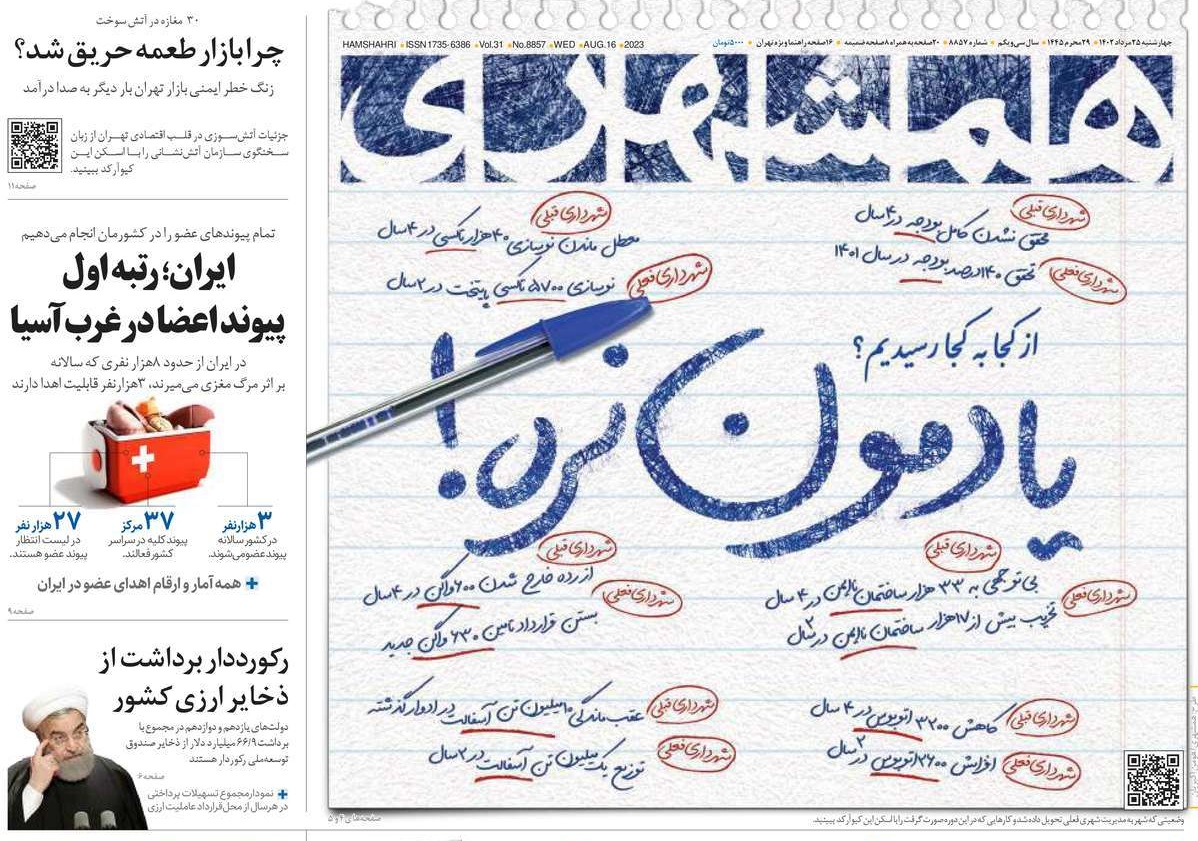 HAMSHAHRI ■ ISSN1735-6386 ■ Vol.31 ■ No.8857 ■ WED ■ AUG.16 ■ 2023
چهارشنبه ۲۵ مرداد ۱۴۰۲ ■ ۲۹ محرم ۱۴۴۵ ■ سال سی‌ویکم ■ شماره ۸۸۵۷ ■ ۲۰صفحه به همراه ۸صفحه ضمیمه ■ ۱۶صفحه راهنما ویژه تهران ■ ۵۰۰۰تومان
همشهری
شهرداری قبلی
محقق نشدن کامل بودجه در ۴ سال
شهرداری فعلی
تحقق ۱۴۰درصد بودجه در سال ۱۴۰۱
شهرداری قبلی
معطل ماندن نوسازی ۴۰هزار تاکسی در ۴ سال
شهرداری فعلی
نوسازی ۵۷۰۰ تاکسی پایتخت در ۲سال
از کجا به کجا رسیدیم؟
یادمون نره!
شهرداری قبلی
بی‌توجهی به ۳۳ هزار ساختمان ناایمن در ۴ سال
شهرداری فعلی
تخریب بیش از ۱۷هزار ساختمان ناایمن در ۲سال
شهرداری قبلی
از رده خارج شدن ۶۰۰واگن در ۴ سال
شهرداری فعلی
بستن قرارداد تامین ۶۳۰ واگن جدید
شهرداری قبلی
کاهش ۳۲۰۰ اتوبوس در ۴ سال
شهرداری فعلی
افزایش ۲۶۰۰اتوبوس در ۲سال
شهرداری قبلی
عقب‌ماندگی ۱۰میلیون تن آسفالت در ادوار گذشته
شهرداری فعلی
توزیع یک میلیون تن آسفالت در ۲ سال
وضعیتی که شهر به مدیریت شهری فعلی تحویل داده شد و کارهایی که در این دوره صورت گرفت را با اسکن این کیوآرکد ببینید.
صفحه‌های ۴ و ۵
۳۰ مغازه در آتش سوخت
چرا بازار طعمه حریق شد؟
زنگ خطر ایمنی بازار تهران بار دیگر به صدا درآمد
جزئیات آتش‌سوزی در قلب اقتصادی تهران از زبان
سخنگوی سازمان آتش‌نشانی را با اسکن این
کیوآرکد ببینید.
صفحه۱۱
تمام پیوندهای عضو را در کشورمان انجام می‌دهیم
ایران؛ رتبه اول
پیوند اعضا در غرب آسیا
در ایران از حدود ۸هزار نفری که سالانه
بر اثر مرگ مغزی می‌میرند، ۳هزار نفر قابلیت اهدا دارند
۳هزار نفر
در کشور سالانه
پیوند عضو می‌شوند.
۳۷ مرکز
پیوند کلیه در سراسر
کشور فعالند.
۲۷ هزار نفر
در لیست انتظار
پیوند عضو هستند.
+ همه آمار و ارقام اهدای عضو در ایران
صفحه۹
رکورددار برداشت از
ذخایر ارزی کشور
دولت‌های یازدهم و دوازدهم در مجموع با
برداشت ۶۶/۹میلیارد دلار از ذخایر صندوق
توسعه‌ملی رکوردار هستند
صفحه۶
+ نمودار مجموع تسهیلات پرداختی
در هرسال از محل قرارداد عاملیت ارزی